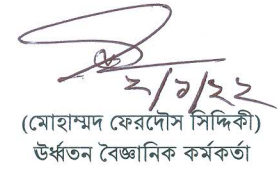 ২/১/২২
(মোহাম্মদ ফেরদৌস সিদ্দিকী)
ঊর্ধ্বতন বৈজ্ঞানিক কর্মকর্তা